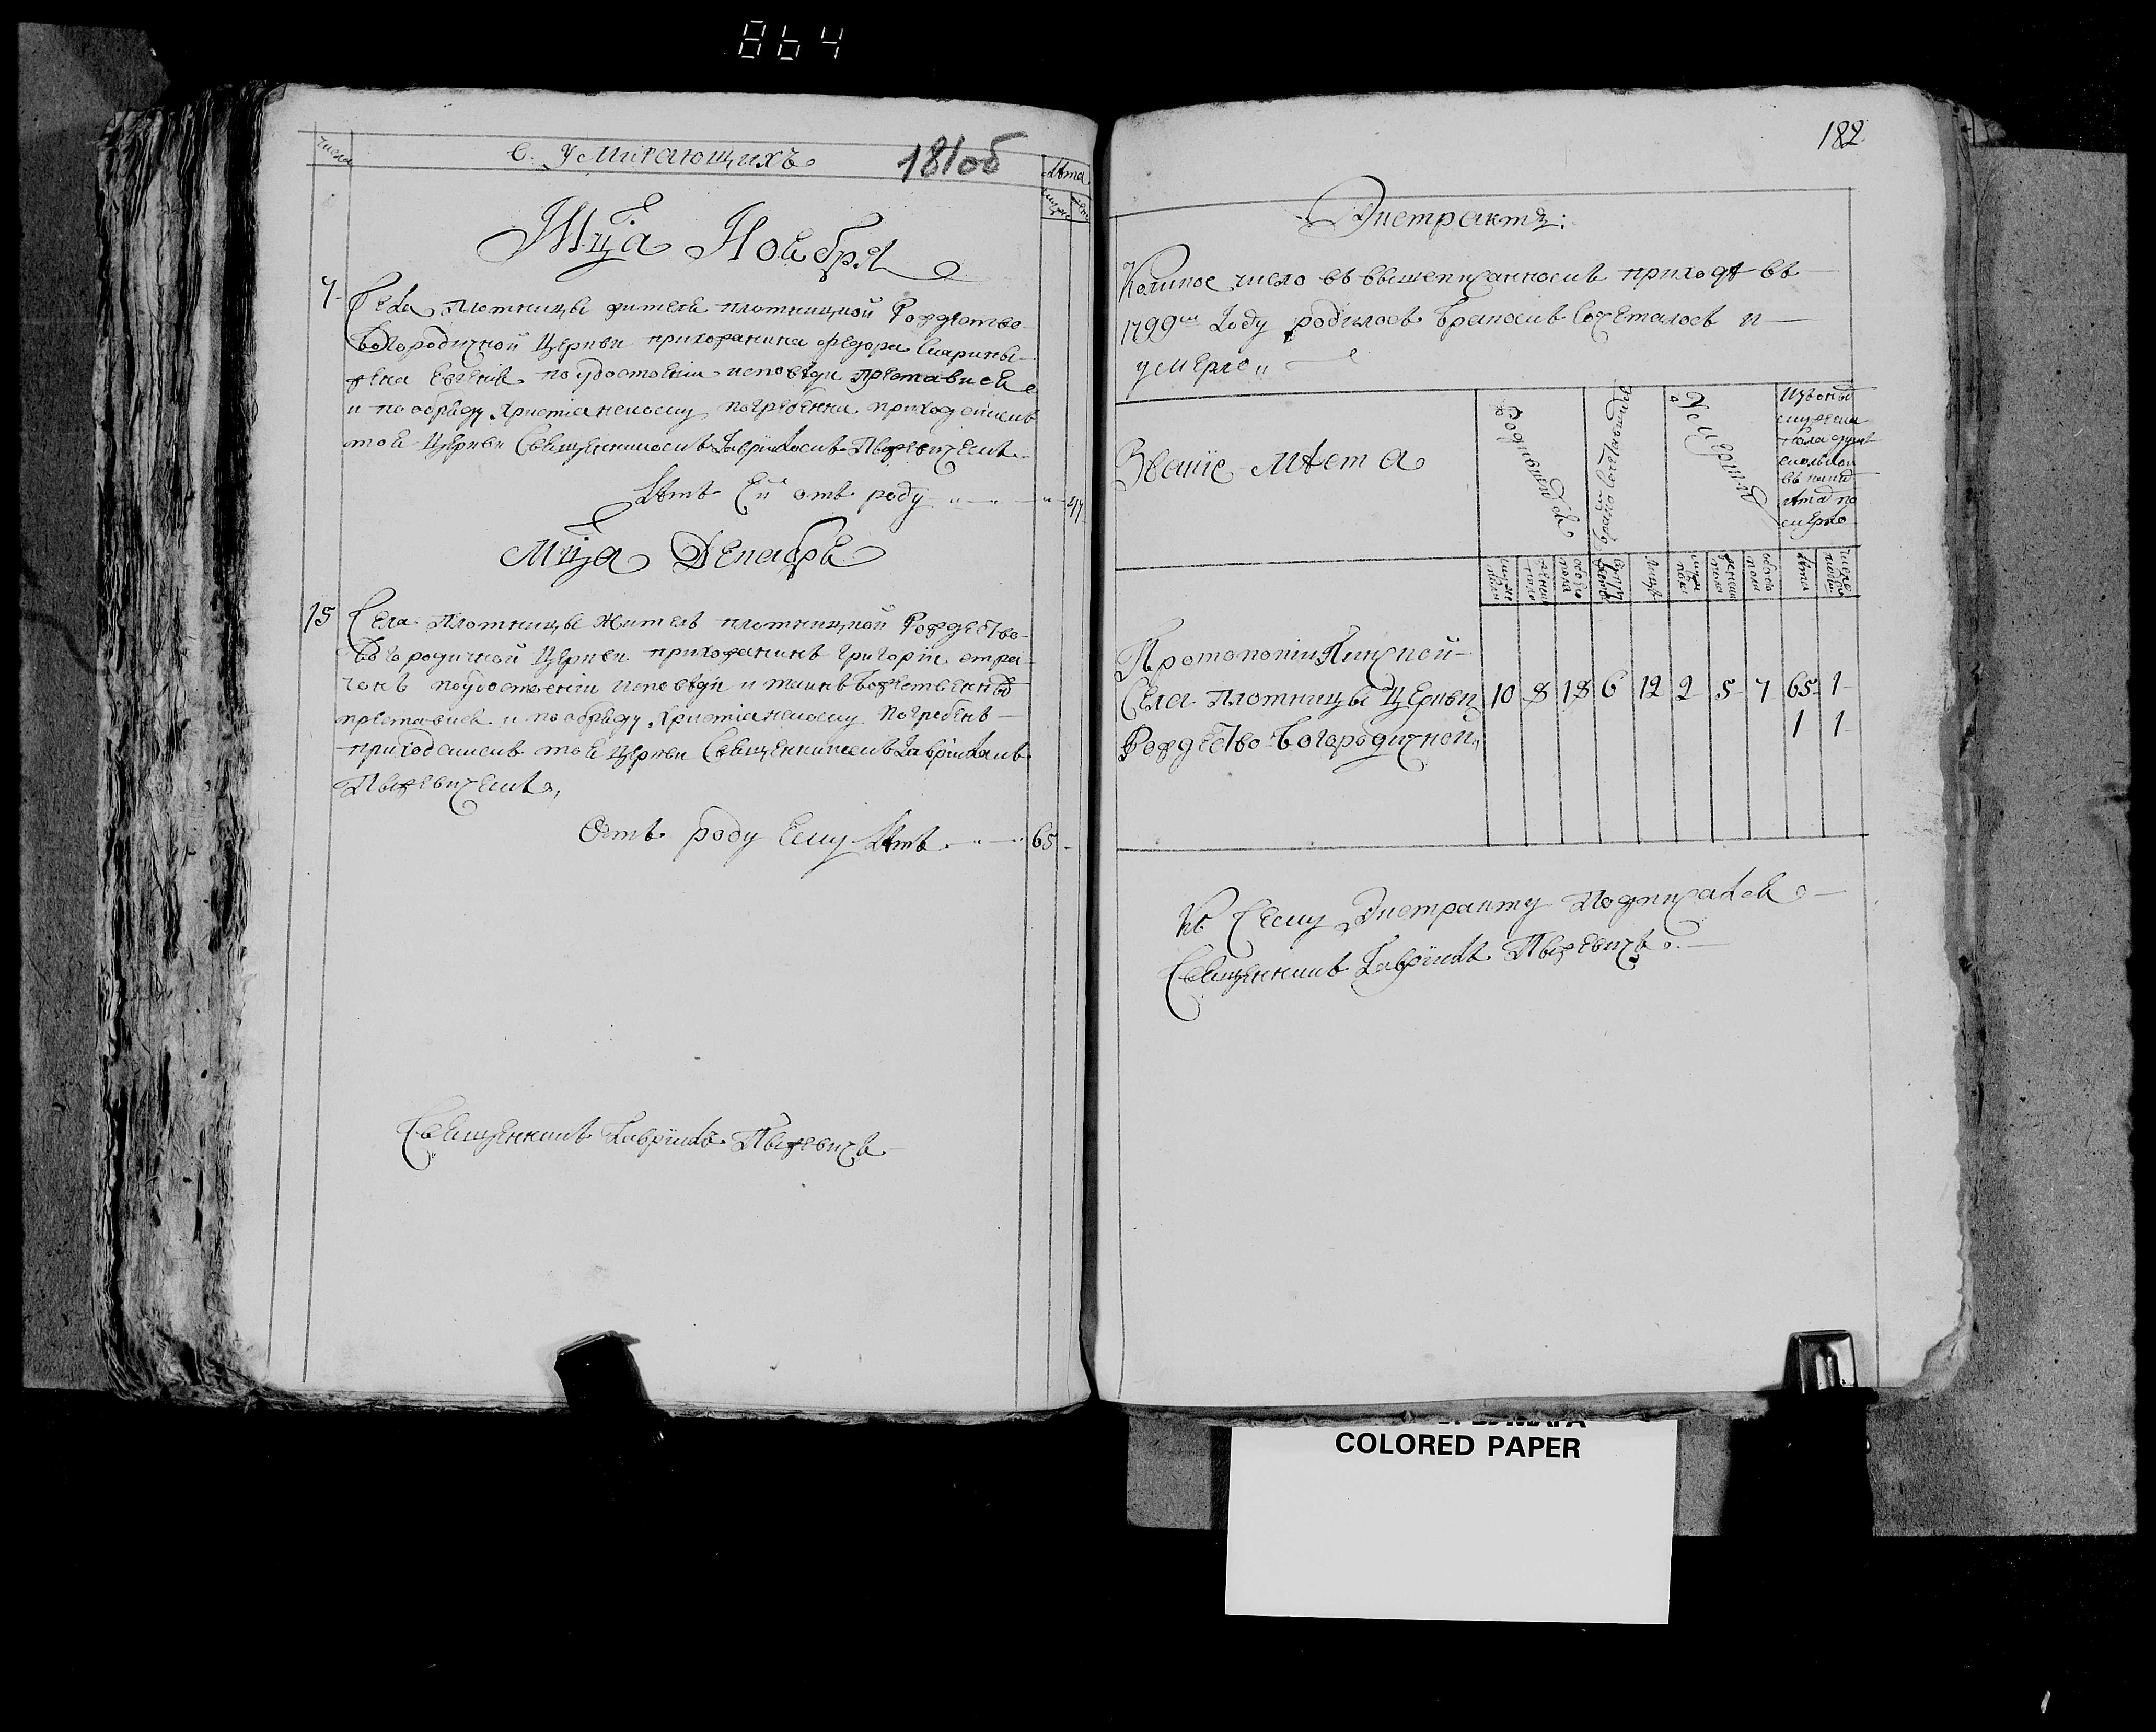 864
числа
о Умирающихъ
181об
Лѣта
Мца Ноября
4
Села Плотницы жителя плотницкой Рождество
Богородичной Церкви прихожанина Федора
жена Евгенія по удостоеніи исповѣди преставися
и по обряду Христіанскому погребенна приходскимъ
той Церкви Священникомъ Гавріиломъ Пыжевичемъ
Лѣтъ Ей отъ роду 44
Мца Декабря
15
Села Плотницы житель плотницкой Рождество
Богородичной Церкви прихожанинъ Григорій
по удостоеніи исповѣди и таинъ Божественныхъ
преставися и по обряду Христіанскому погребенъ
приходскимъ той Церкви Священникомъ Гавріиломъ
Пыжевичемъ,
Отъ роду Ему Лѣтъ 65
Священникъ Гавріилъ Пыжевичъ
182
Экстрактъ:
Коликое число въ вышеписанномъ приходѣ въ
1799мъ Году родилось бракомъ Сочеталось и
умерло
Званіе мѣста
Родившихся
Умершихъ
мужеска
пола
Протопопіи Пинской
Села Плотницы Церкви 10 8 18 6 12 2 5 7 65 1
Рождество Богородичной, 1 1
Къ Сему Экстракту Подписался
Священникъ Гавріилъ Пыжевичъ
COLORED PAPER